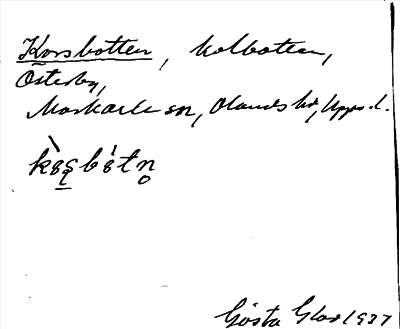 Korsbotten, kolbotten,
Österby,
Morkarla sn, Olands hd, Upps. l.
Gösta Glas 1937